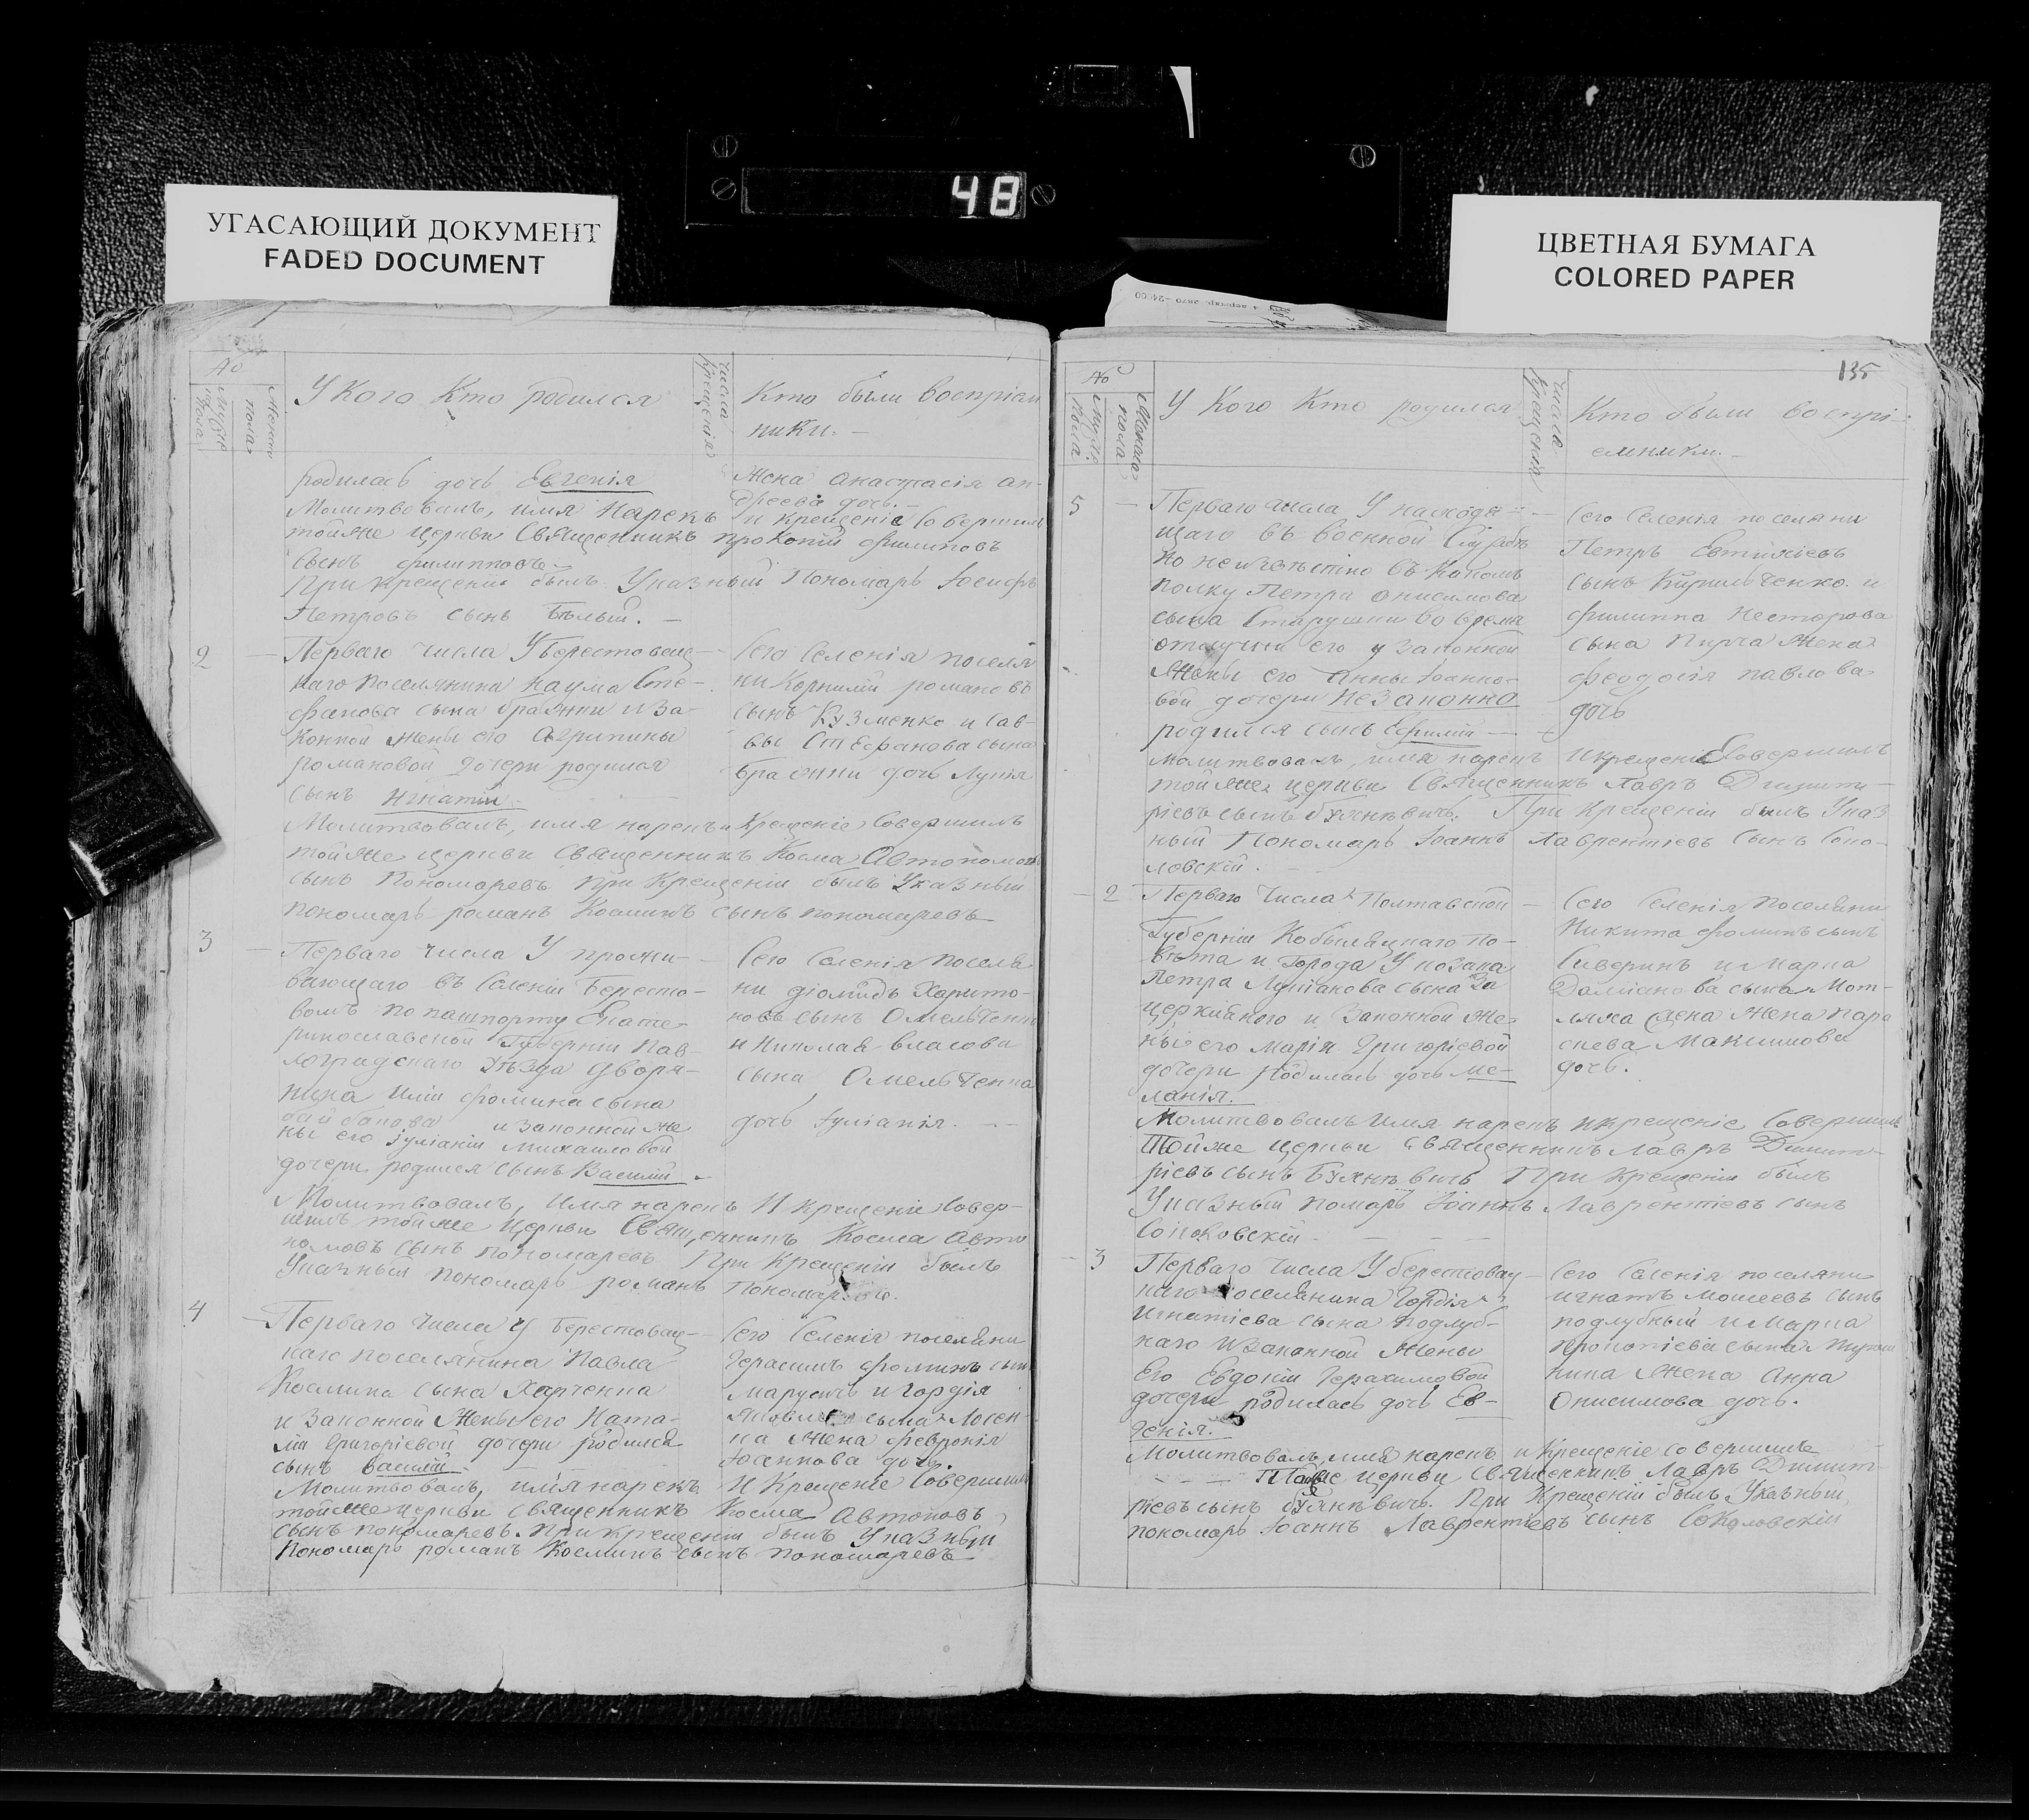 48
УГАСАЮЩИЙ ДОКУМЕНТ
FADED DOCUMENT
ЦВЕТНАЯ БУМАГА
COLORED PAPER
No
Мужес. пола
Женска пола
У кого Кто родился
числа Крещенія
Кто были воспріем
ники. —
родилась дочь Евгенія
Молитвовалъ, имя Нарекъ и крещеніе Совершилъ
тойже церкви Священникъ прокопій филиповъ
сынъ
При Крещеніи былъ Указный Пономарь Іосифъ
Петровъ сынъ Бѣлый. —
Жена Анастасія Ан-
дреева дочь. —
2
Перваго числа У Берестовец-
каго поселянина Наума Сте-
фанова сына Бражни и За-
конной жены его Агрипины
романовой дочери родился
сынъ Игнатій
Молитвовалъ, имя нарекъ и Крещеніе Совершилъ
тойже церкви Священникъ Косма Автономовъ
сынъ Пономаревъ при Крещеніи былъ Указный
пономарь романъ Косминъ сынъ пономаревъ
Сего Селенія поселя
нинъ Корнилій романовъ
сынъ Кузменко и Сав-
вы Стефанова сына
Бражнни дочь Лукія
3
Перваго числа У прожи-
вающаго въ Селеніи Бересто-
вомъ по пашпорту Екате-
ринославской Губерніи Пав-
лоградскаго Уѣзда дворя-
нина Иліи фомина сына
и законной же
ны его Іуліаніи Михаиловой
дочери родился сынъ Василій
Молитвовалъ, имя нарекъ И крещеніе Совер-
шилъ тойже церкви Священникъ Косма Авто
номовъ сынъ пономаревъ При Крещеніи былъ
Указный пономарь романъ Пономаревъ.
Сего Селенія поселя
ни діомидъ Харито-
новъ сынъ Омельченко
и Николая власова
сына Омельченка
дочь Іуліанія.
4
Перваго числа У Берестовец-
каго поселянина Павла
Космина сына Харченка
и Законной Жены его Ната-
ліи Григоріевой дочери родился
сынъ василій
Молитвовалъ, имя нарекъ И Крещеніе Совершилъ
тойже церкви священникъ Косма Автоновъ
сынъ пономаревъ. при крещеніи былъ Указный
Пономарь романъ Косминъ сынъ пономаревъ
Сего Селенія поселяни
Герасимъ фоминъ сынъ
Марусичъ и Гордія
сына Лосен-
ка жена февронія
Іоаннова дочь.
135
No
Муж. пола
Женска пола
У Кого Кто родился
числа Крещенія
Кто были воспрі-
емники. —
5
Перваго числа У находя-
щаго въ военной Службѣ
но неизвѣстно въ Какомъ
полку Петра Онисимова
сына Старушки во время
отлучки его у законной
Жены его Анны Іоанно-
вой дочери незаконно
родился сынъ Ефимій
Молитвовалъ, имя нарекъ и крещеніе Совершилъ
тойже церкви Священникъ Лавръ Димит-
ріевъ сынъ Буянкевичъ. При Крещеніи былъ Указ
ный Пономарь Іоаннъ Лаврентіевъ Сынъ Соко-
ловскій.
Сего Селенія поселяни
Петръ Евтихіевъ
сынъ Кирильченко и
филиппа Несторова
сына Жена
феодосія павлова
дочь
2
Перваго Числа Полтавской
Губерніи Кобыляцкаго По-
вѣта и Города У козака
Петра Лукіанова сына За
церкійного и Законной Же-
ны его Маріи Григоріевой
дочери родилась дочь Ме-
ланія.
Молитвовалъ имя нарекъ и крещеніе Совершилъ
Тойже церкви священникъ Лавръ Димит-
ріевъ сынъ Буянкевичъ При Крещеніи былъ
Указный помарь Іоаннъ Лаврентіевъ сынъ
Соколовскій
Сего Селенія Поселяни
Никита фоминъ сынъ
Сиверинъ и Марка
Даміанова сына
жена Пара
скева Максимова
дочь.
3
Перваго числа У берестовец-
каго поселянина Гордія
Игнатіева сына Подлуб-
наго и Законной Жены
Его Евдокіи Герасимовой
дочери родилась дочь Ев-
генія.
Молитвовалъ, имя нарекъ и Крещеніе совершилъ
Тойже церкви Священникъ Лавръ Димит-
ріевъ сынъ буянкевичъ. При Крещеніи былъ Указный
пономарь Іоаннъ Лаврентіевъ сынъ Соколовскій
Сего Селенія поселяни
игнатъ Моисеевъ сынъ
подлубный и Марка
Прокопіева сына
жена Анна
Онисимова дочь.